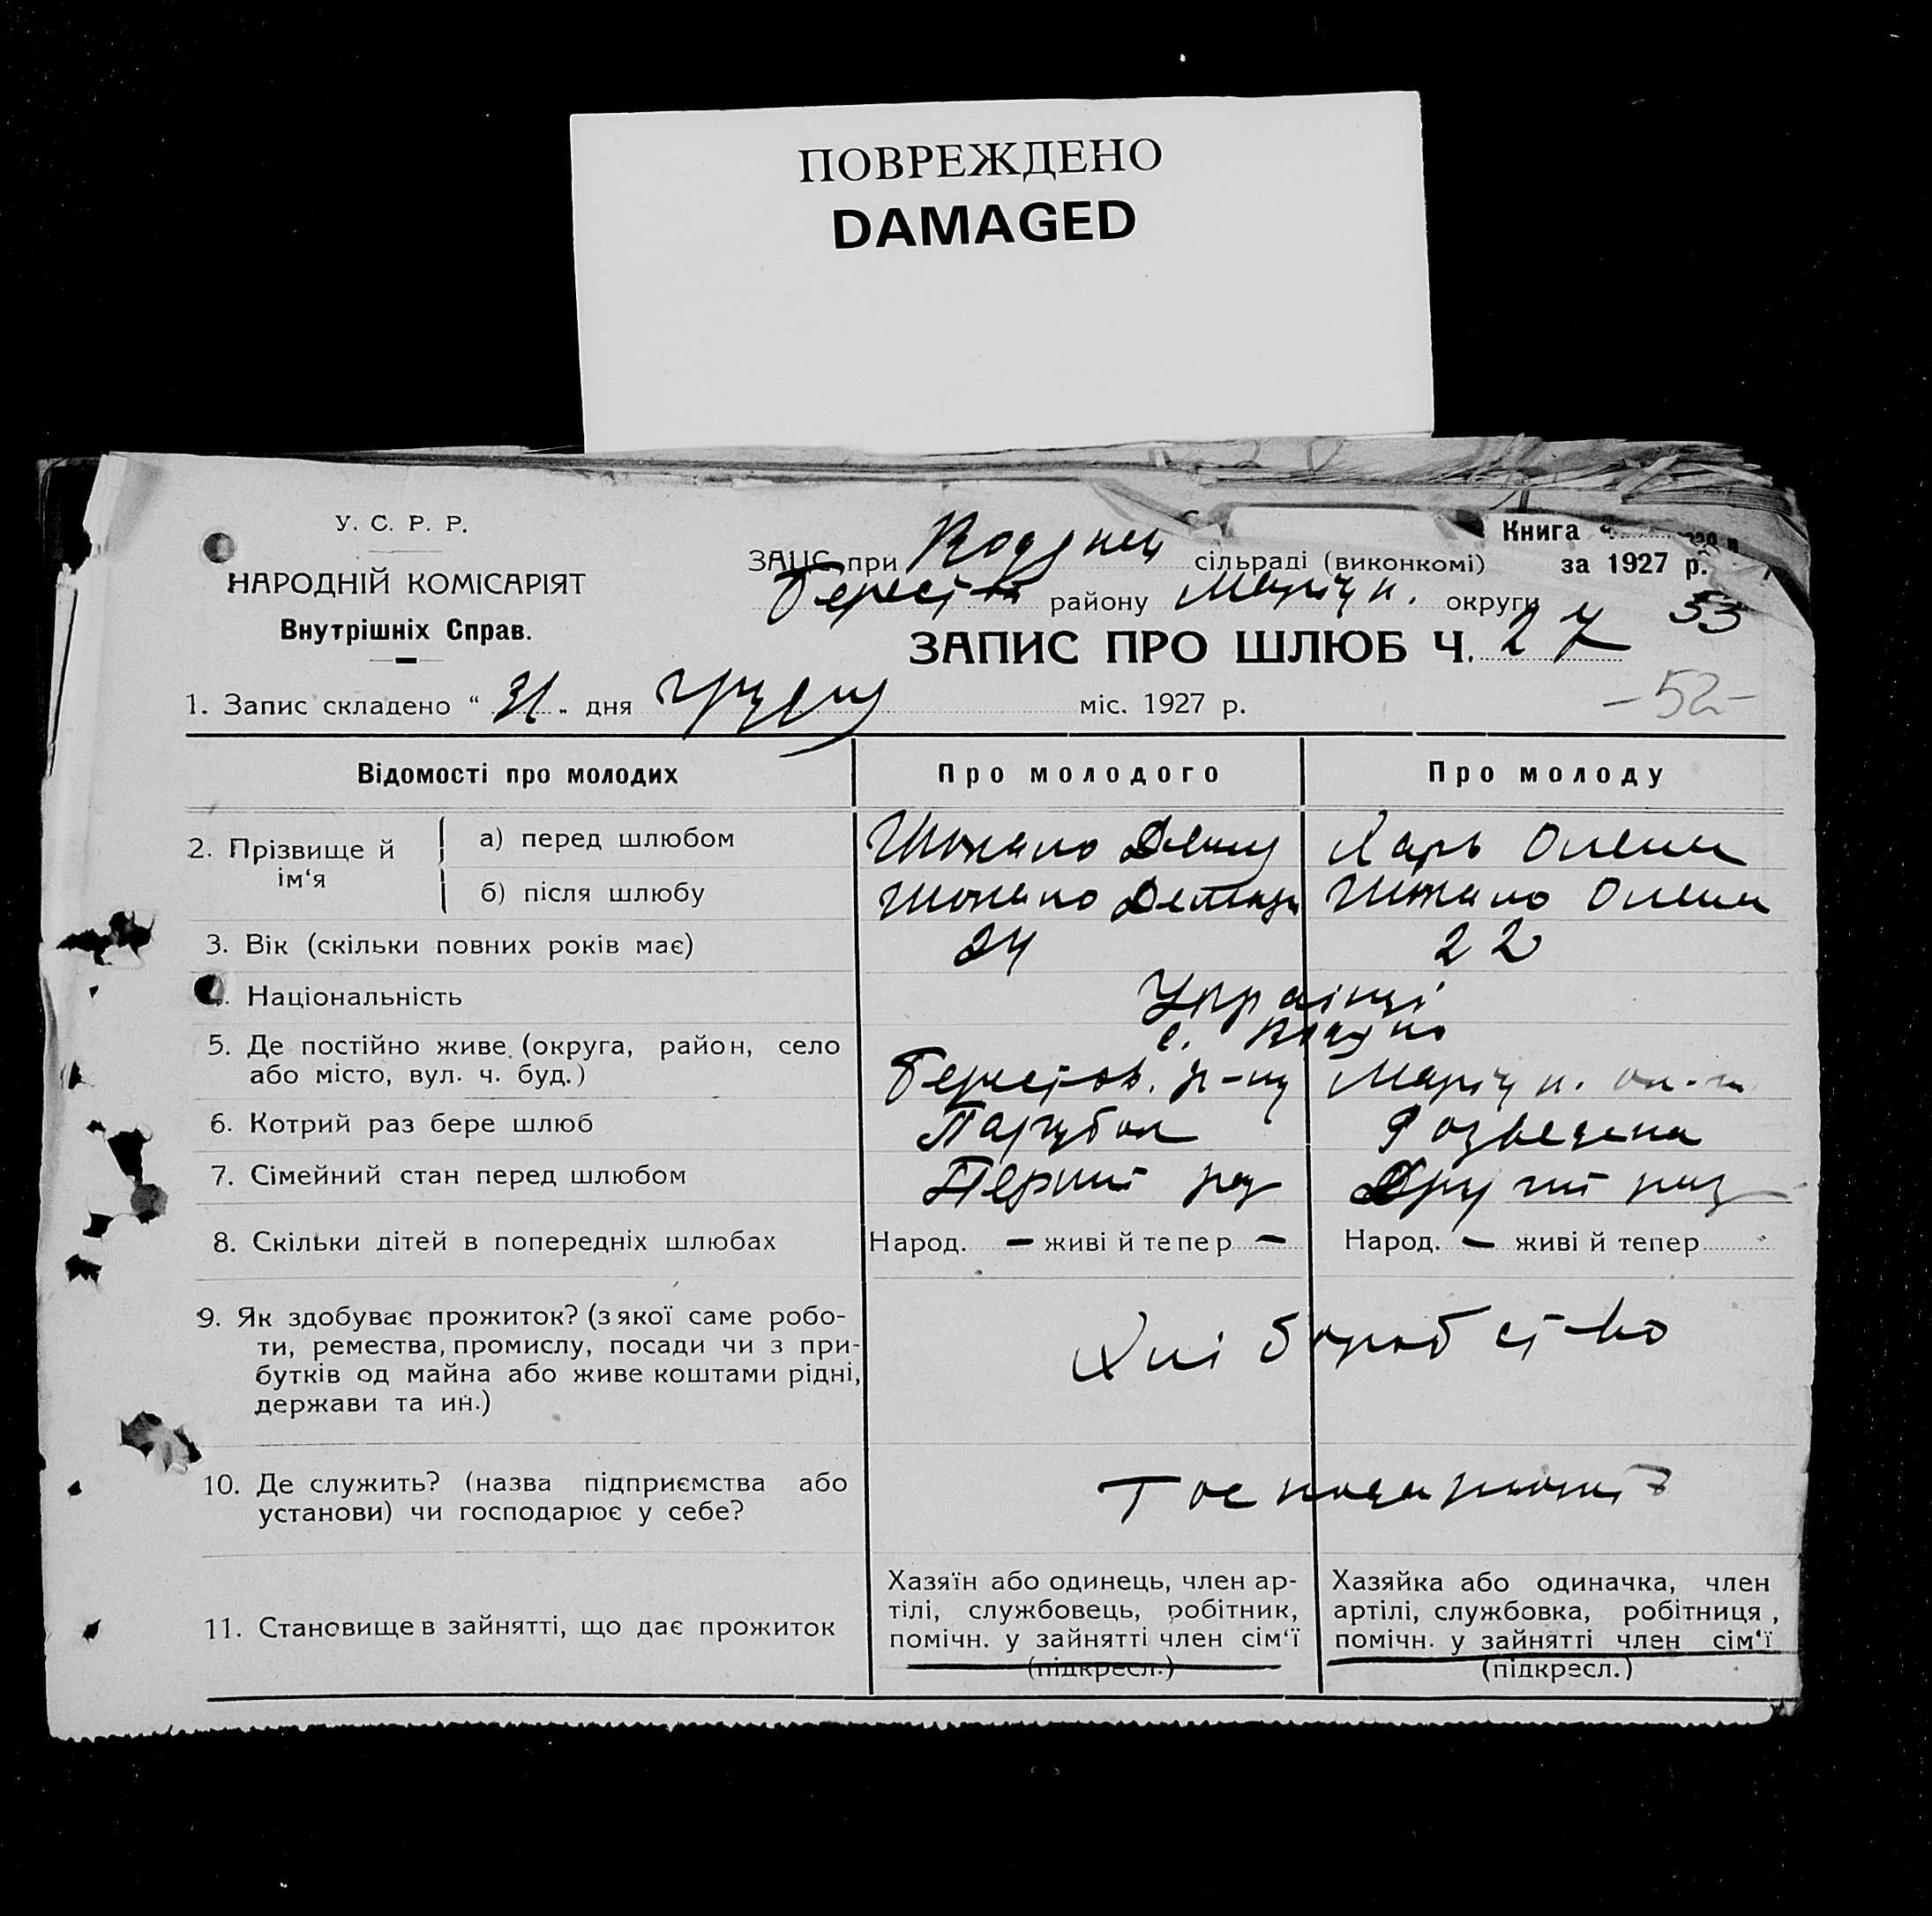 ПОВРЕЖДЕНО
DAMAGED
У. С. Р. Р.
НАРОДНІЙ КОМІСАРІЯТ
Внутрішніх Справ.
Книга
ЗАЦС при сільраді (виконкомі) за 1927 р.
Берестов району Маріуп. округи 53
ЗАПИС ПРО ШЛЮБ Ч. 27
-52-
1. Запис складено “ 31 „ дня грудня міс. 1927 р.
Відомості про молодих Про молодого Про молоду
2. Прізвище й ім‘я
а) перед шлюбом Олена
б) після шлюбу Олена
3. Вік (скільки повних років має) 24 22
4. Національність Українці
5. Де постійно живе (округа, район, село
або місто, вул. ч. буд.) Берестов. р-ну Маріуп. ок-ги
6. Котрий раз бере шлюб Парубок Розведена
7. Сімейний стан перед шлюбом Перший раз Другий раз
8. Скільки дітей в попередніх шлюбах Народ. — живі й тепер — Народ. — живі й тепер
9. Як здобуває прожиток? (з якої саме робо-
ти, ремества, промислу, посади чи з при-
бутків од майна або живе коштами рідні,
держави та ин.)
Хліборобство
10. Де служить? (назва підприємства або
установи) чи господарює у себе?
11. Становище в зайнятті, що дає прожиток
Хазяїн або одинець, член ар-
тілі, службовець, робітник,
помічн. у зайнятті член сім‘ї
(підкресл.)
Хазяйка або одиначка, член
артілі, службовка, робітниця,
помічн. у зайнятті член сім‘ї
(підкресл.)